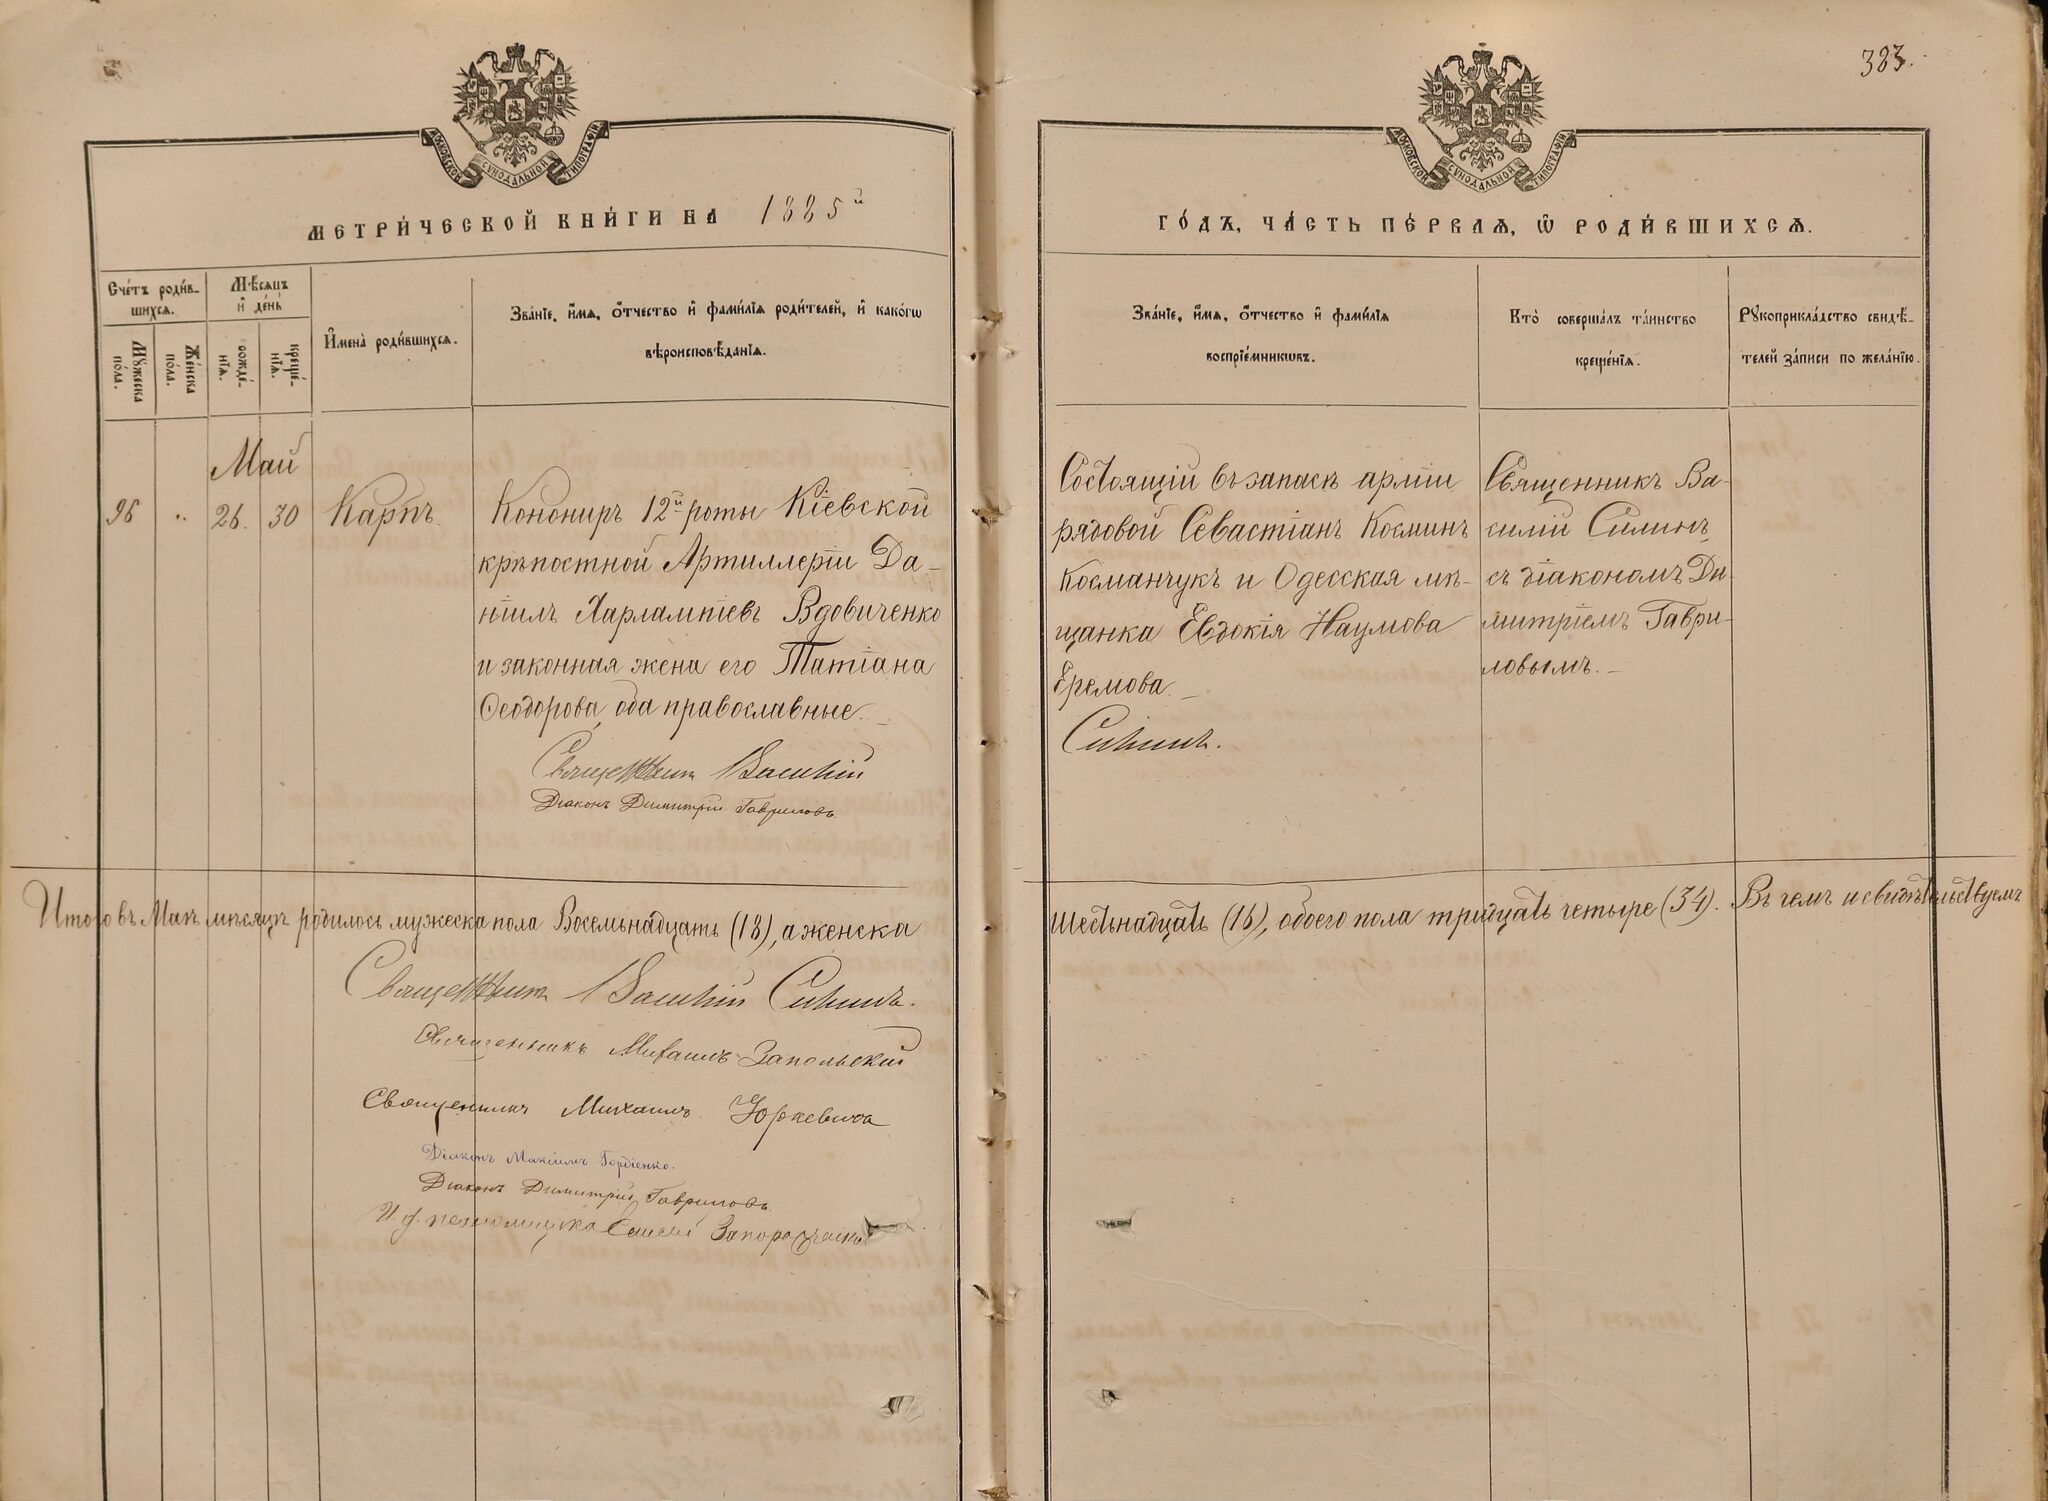 383.
МОСКОВСКОЙ СУНОДАЛЬНОЙ ТИПОГРАФІИ
МОСКОВСКОЙ СУНОДАЛЬНОЙ ТИПОГРАФІИ
МЕТРИ́ЧЕСКОЙ КНИ́ГИ НА 1885й
ГО́ДЪ, ЧА́СТЬ ПЕ́РВАѦ, Ѡ РОДИ́ВШИХСѦ.
Сче́тъ роди́в-
шихсѧ.
Мꙋ́жеска
по́ла.
Же́нска
по́ла.
Мѣ́сѧцъ
и҆ де́нь
рожде́-
нїѧ.
креще́-
нїѧ.
И҆мена̀ роди́вшихсѧ.
Зва́нїе, и҆́мѧ, ѻ҆́тчество и҆ фами́лїѧ роди́телей, и҆ како́гѡ
вѣроисповѣ́данїѧ.
Зва́нїе, и҆́мѧ, ѻ҆́тчество и҆ фами́лїѧ
воспрїе́мникѡвъ.
Кто̀ соверша́лъ та́инство
креще́нїѧ.
Рꙋкоприкла́дство свидѣ́-
телей за́писи по жела́нїю.
Май
96 „ 26. 30 Карпъ.
Кононир 12й роты Кіевской
крѣпостной Артиллеріи Да-
ніилъ Харлампіевъ Вдовиченко
и законная жена его Татіана
Ѳеодорова, оба православные.
Священникъ Василій
Діаконъ Димитрій Гавриловъ.
Состоящій въ запасѣ арміи
рядовой Севастіанъ Косминъ
Косманчукъ и Одесская мѣ-
щанка Евдокія Наумова
Еремова.
Силинъ.
Священникъ Ва-
силій Силинъ,
съ діакономъ Ди-
митріемъ Гаври-
ловымъ.
Итого въ Маѣ мѣсяцѣ родилось мужеска пола Восемьнадцать (18), а женска
шестьнадцать (16), обоего пола тридцать четыре (34). Въ чемъ и свидѣтельствуемъ
Священникъ Василій Силинъ.
Священникъ Михаилъ Запольскій
Священникъ Михаилъ Юркевичъ
Діаконъ Максимъ Гордіенко.
Діаконъ Димитрій Гавриловъ.
И. д. псаломщика Запорожченко